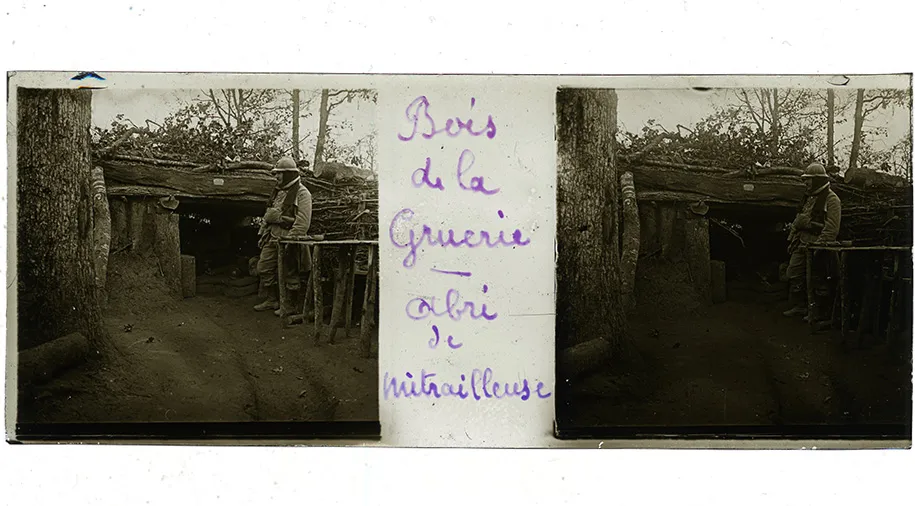 Bois
de la
Gruerie
—
Abri
de
mitrailleuse